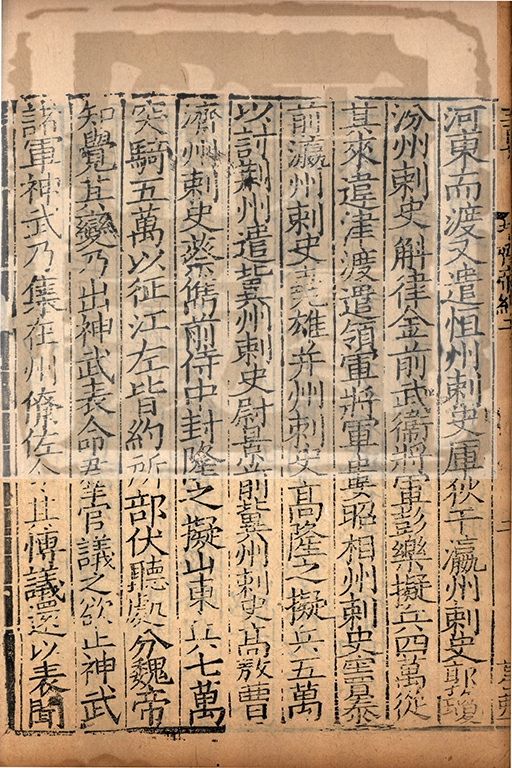 河東而渡又遣恒州刺史庫狄干瀛州刺史郭瓊
汾州刺史斛律金前武衛將軍彭樂擬兵四萬從
其來違津渡遣領軍將軍婁昭相州刺史竇泰
前瀛州刺史堯雄并州刺史高隆之擬兵五萬
以討荊州遣冀州刺史尉景前冀州刺史高敖曹
濟州刺史蔡儁前侍中封隆之擬山東兵七萬
突騎五萬以征江左皆約所部伏聽處分魏帝
知覺其變乃出神武表命羣官議之欲止神武
諸軍神武乃集在州僚佐令其博議還以表聞